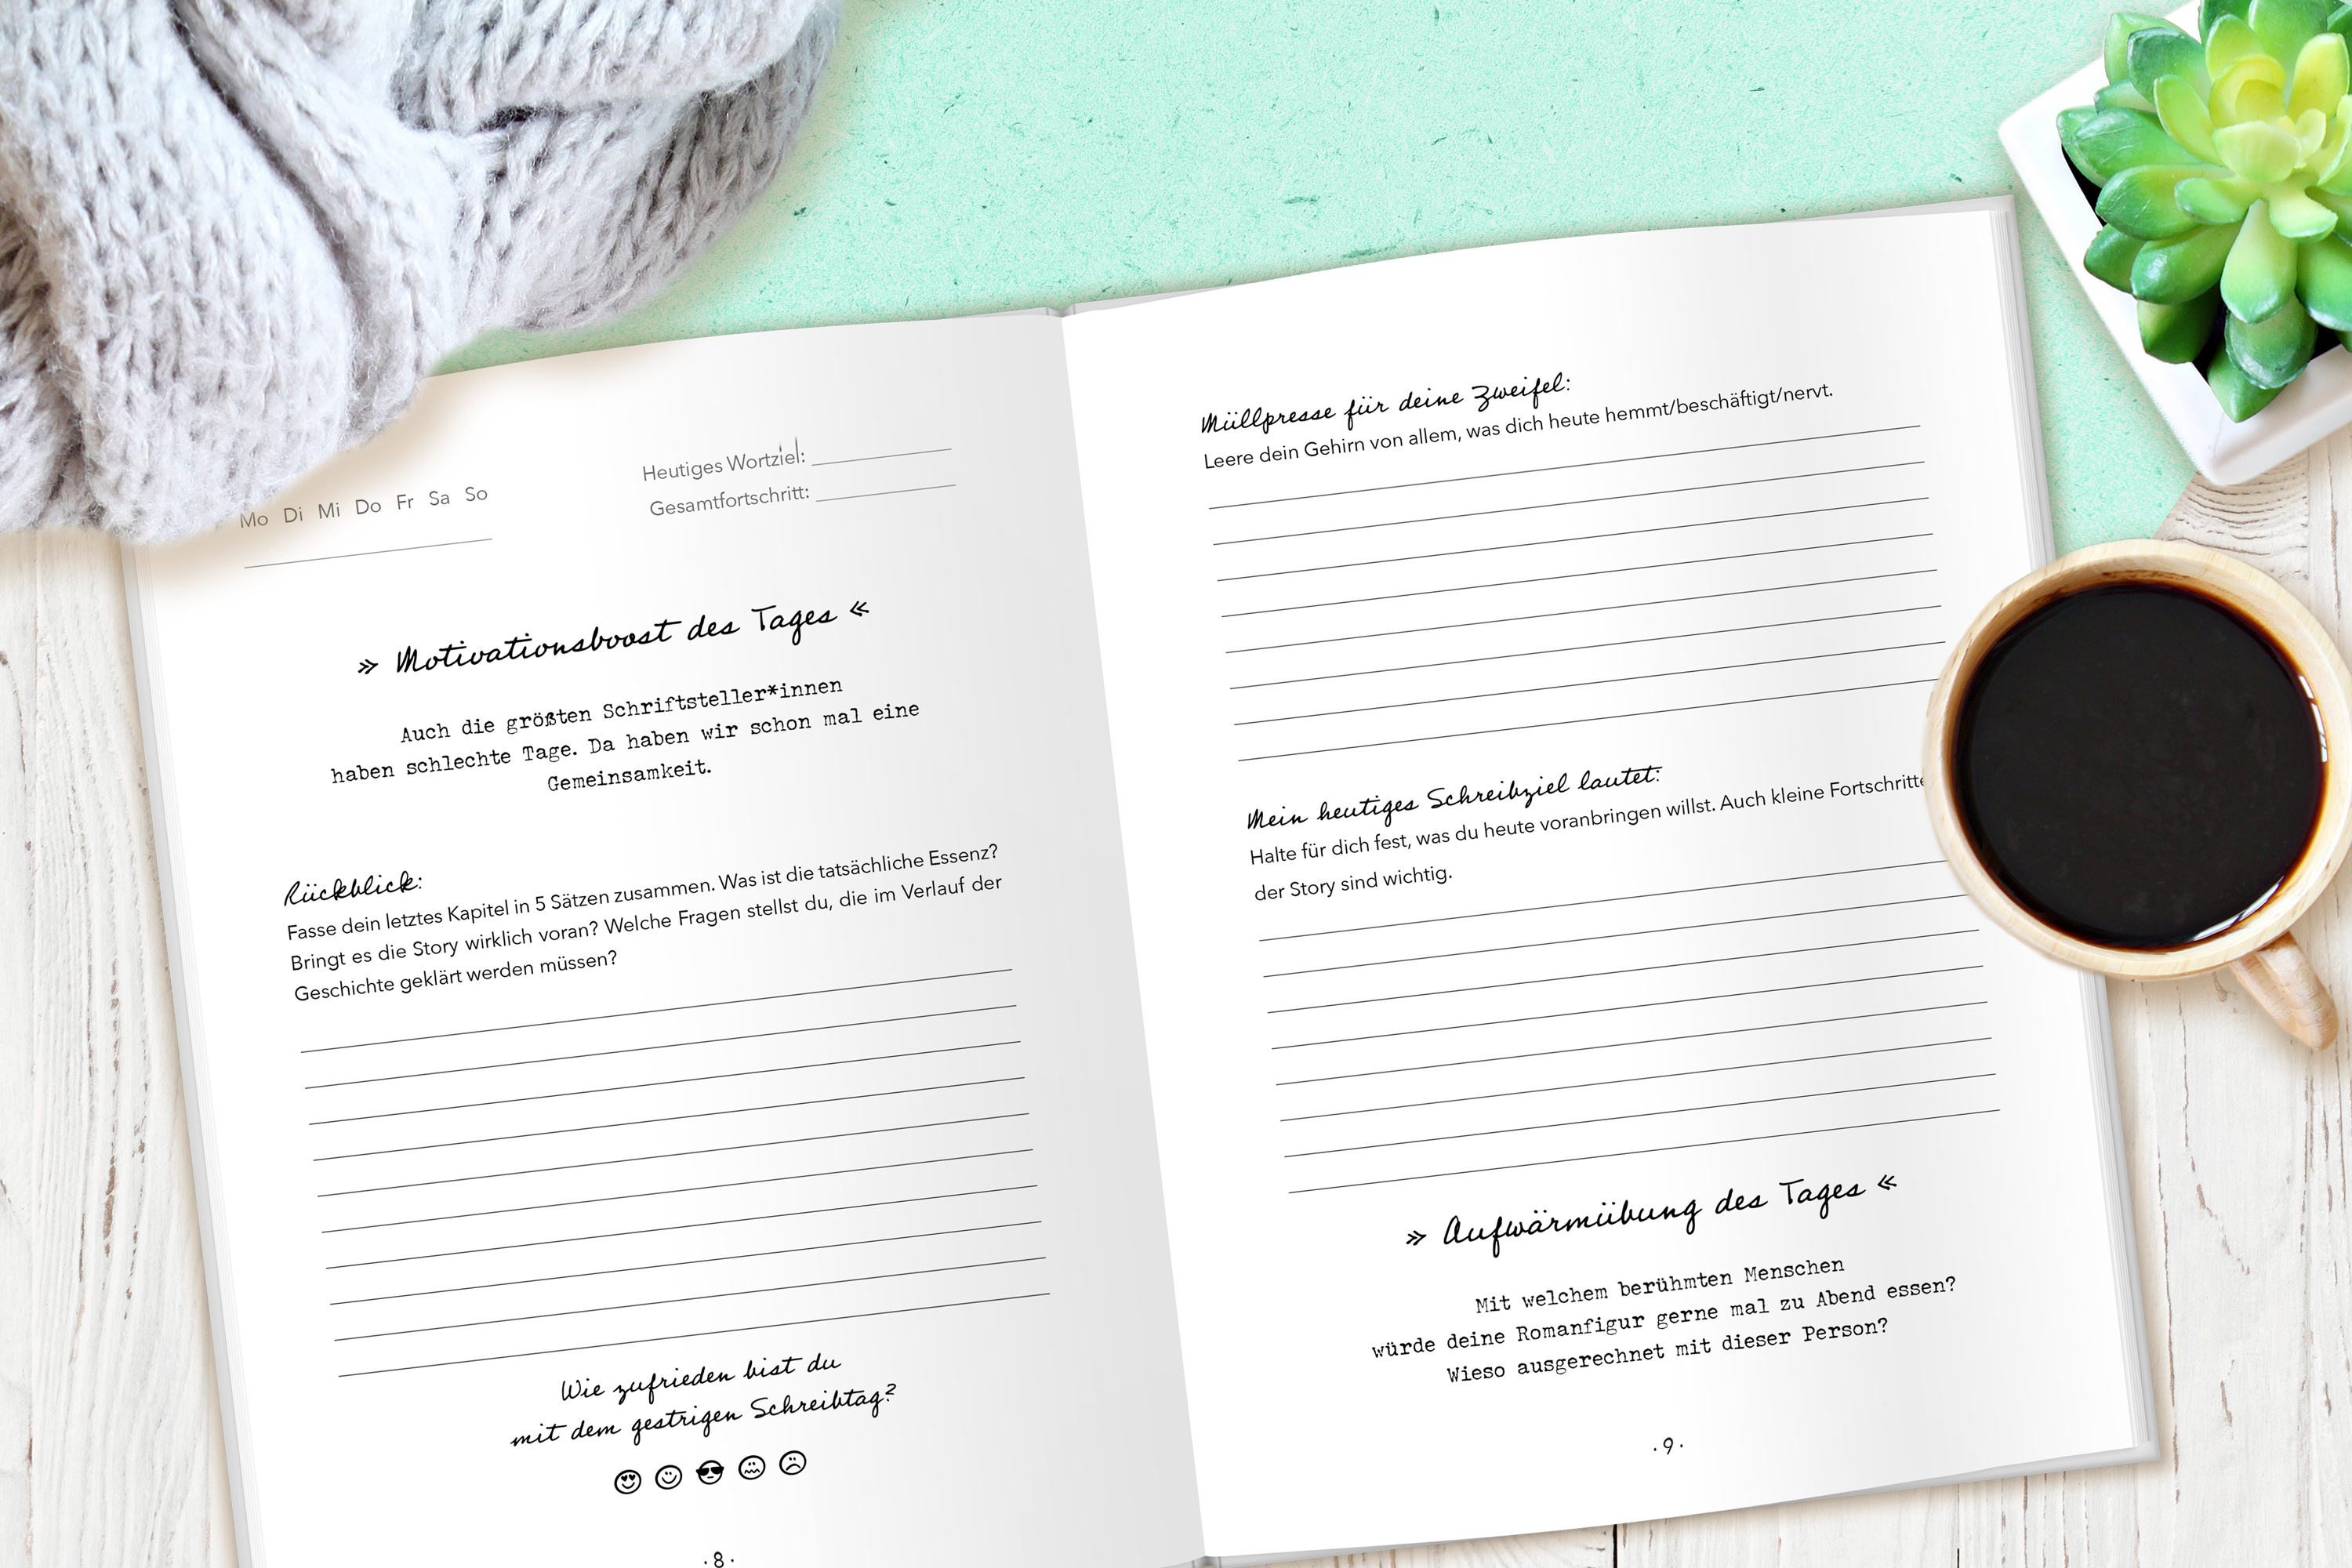 Mo Di Mi Do Fr Sa So
Heutiges Wortziel:
Gesamtfortschritt:
» Motivationsboost des Tages «
Auch die größten Schriftsteller*innen
haben schlechte Tage. Da haben wir schon mal eine
Gemeinsamkeit.
Rückblick:
Fasse dein letztes Kapitel in 5 Sätzen zusammen. Was ist die tatsächliche Essenz?
Bringt es die Story wirklich voran? Welche Fragen stellst du, die im Verlauf der
Geschichte geklärt werden müssen?
Wie zufrieden bist du
mit dem gestrigen Schreibtag?
· 8 ·
Müllpresse für deine Zweifel:
Leere dein Gehirn von allem, was dich heute hemmt/beschäftigt/nervt.
Mein heutiges Schreibziel lautet:
Halte für dich fest, was du heute voranbringen willst. Auch kleine Fortschritte
der Story sind wichtig.
» Aufwärmübung des Tages «
Mit welchem berühmten Menschen
würde deine Romanfigur gerne mal zu Abend essen?
Wieso ausgerechnet mit dieser Person?
· 9 ·